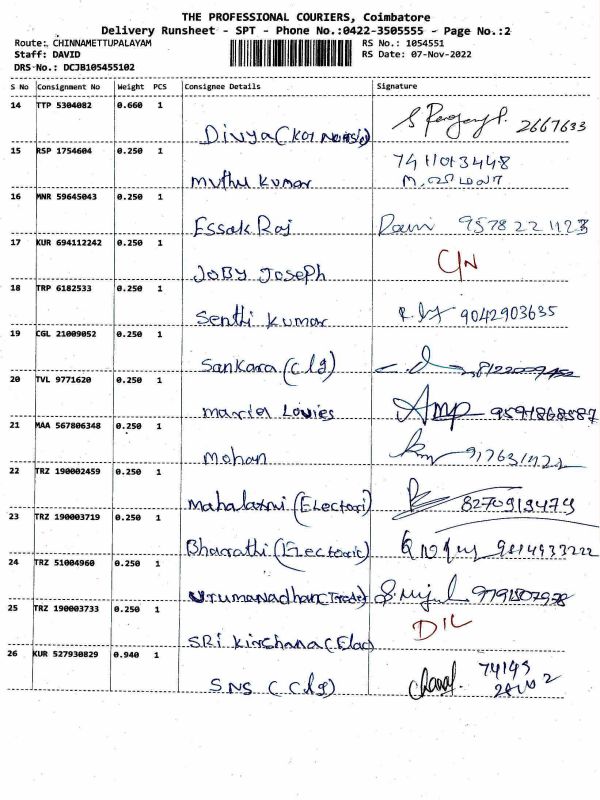 THE PROFESSIONAL COURIERS, Coimbatore
Delivery Runsheet - SPT - Phone No.:0422-3505555 - Page No.:2
Route: CHINNAMETTUPALAYAM RS No.: 1054551
Staff: DAVID RS Date: 07-Nov-2022
DRS No.: DCJB105455102
S No Consignment No Weight PCS Consignee Details Signature
14 TTP 5304082 0.660 1
Divya 2667633
15 RSP 1754604 0.250 1 7411013448
Muthu Kumar
16 MNR 59645043 0.250 1
Essak Raj
17 KUR 694112242 0.250 1 C/N
Joby Joseph
18 TRP 6182533 0.250 1
Senthi Kumar 9042903635
19 CGL 21009052 0.250 1
Sankara (clg)
20 TVL 9771620 0.250 1
Maria Lovies Amp
21 MAA 567806348 0.250 1
Mohan
22 TRZ 190002459 0.250 1
Mahalaxmi 8270919479
23 TRZ 190003719 0.250 1
Bharathi
24 TRZ 51004960 0.250 1
25 TRZ 190003733 0.250 1 D/L
SRi
26 KUR 527930829 0.940 1
SNS (clg)